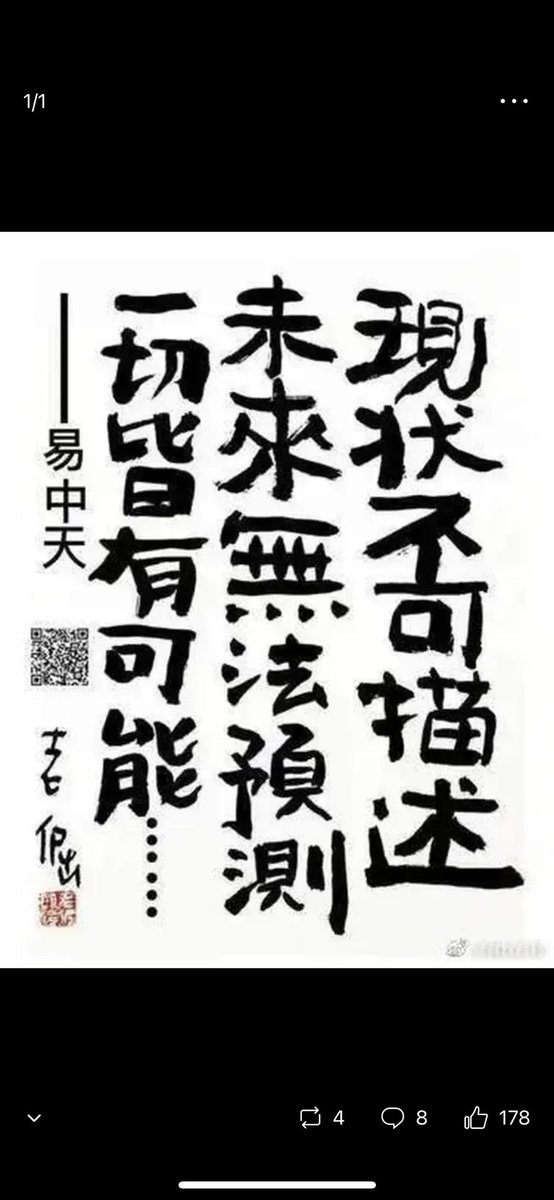 1/1
現状不可描述
未來無法預測
一切皆有可能……
——易中天
4
8
178